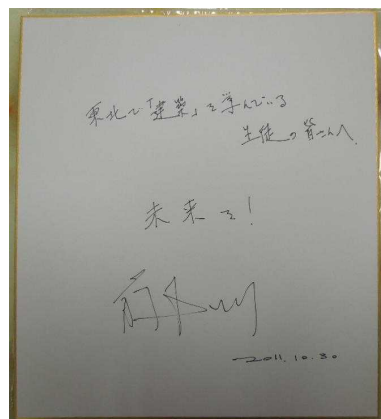 東北で「建築」を学んでいる
生徒の皆さんへ
未来を!
2011.10.30